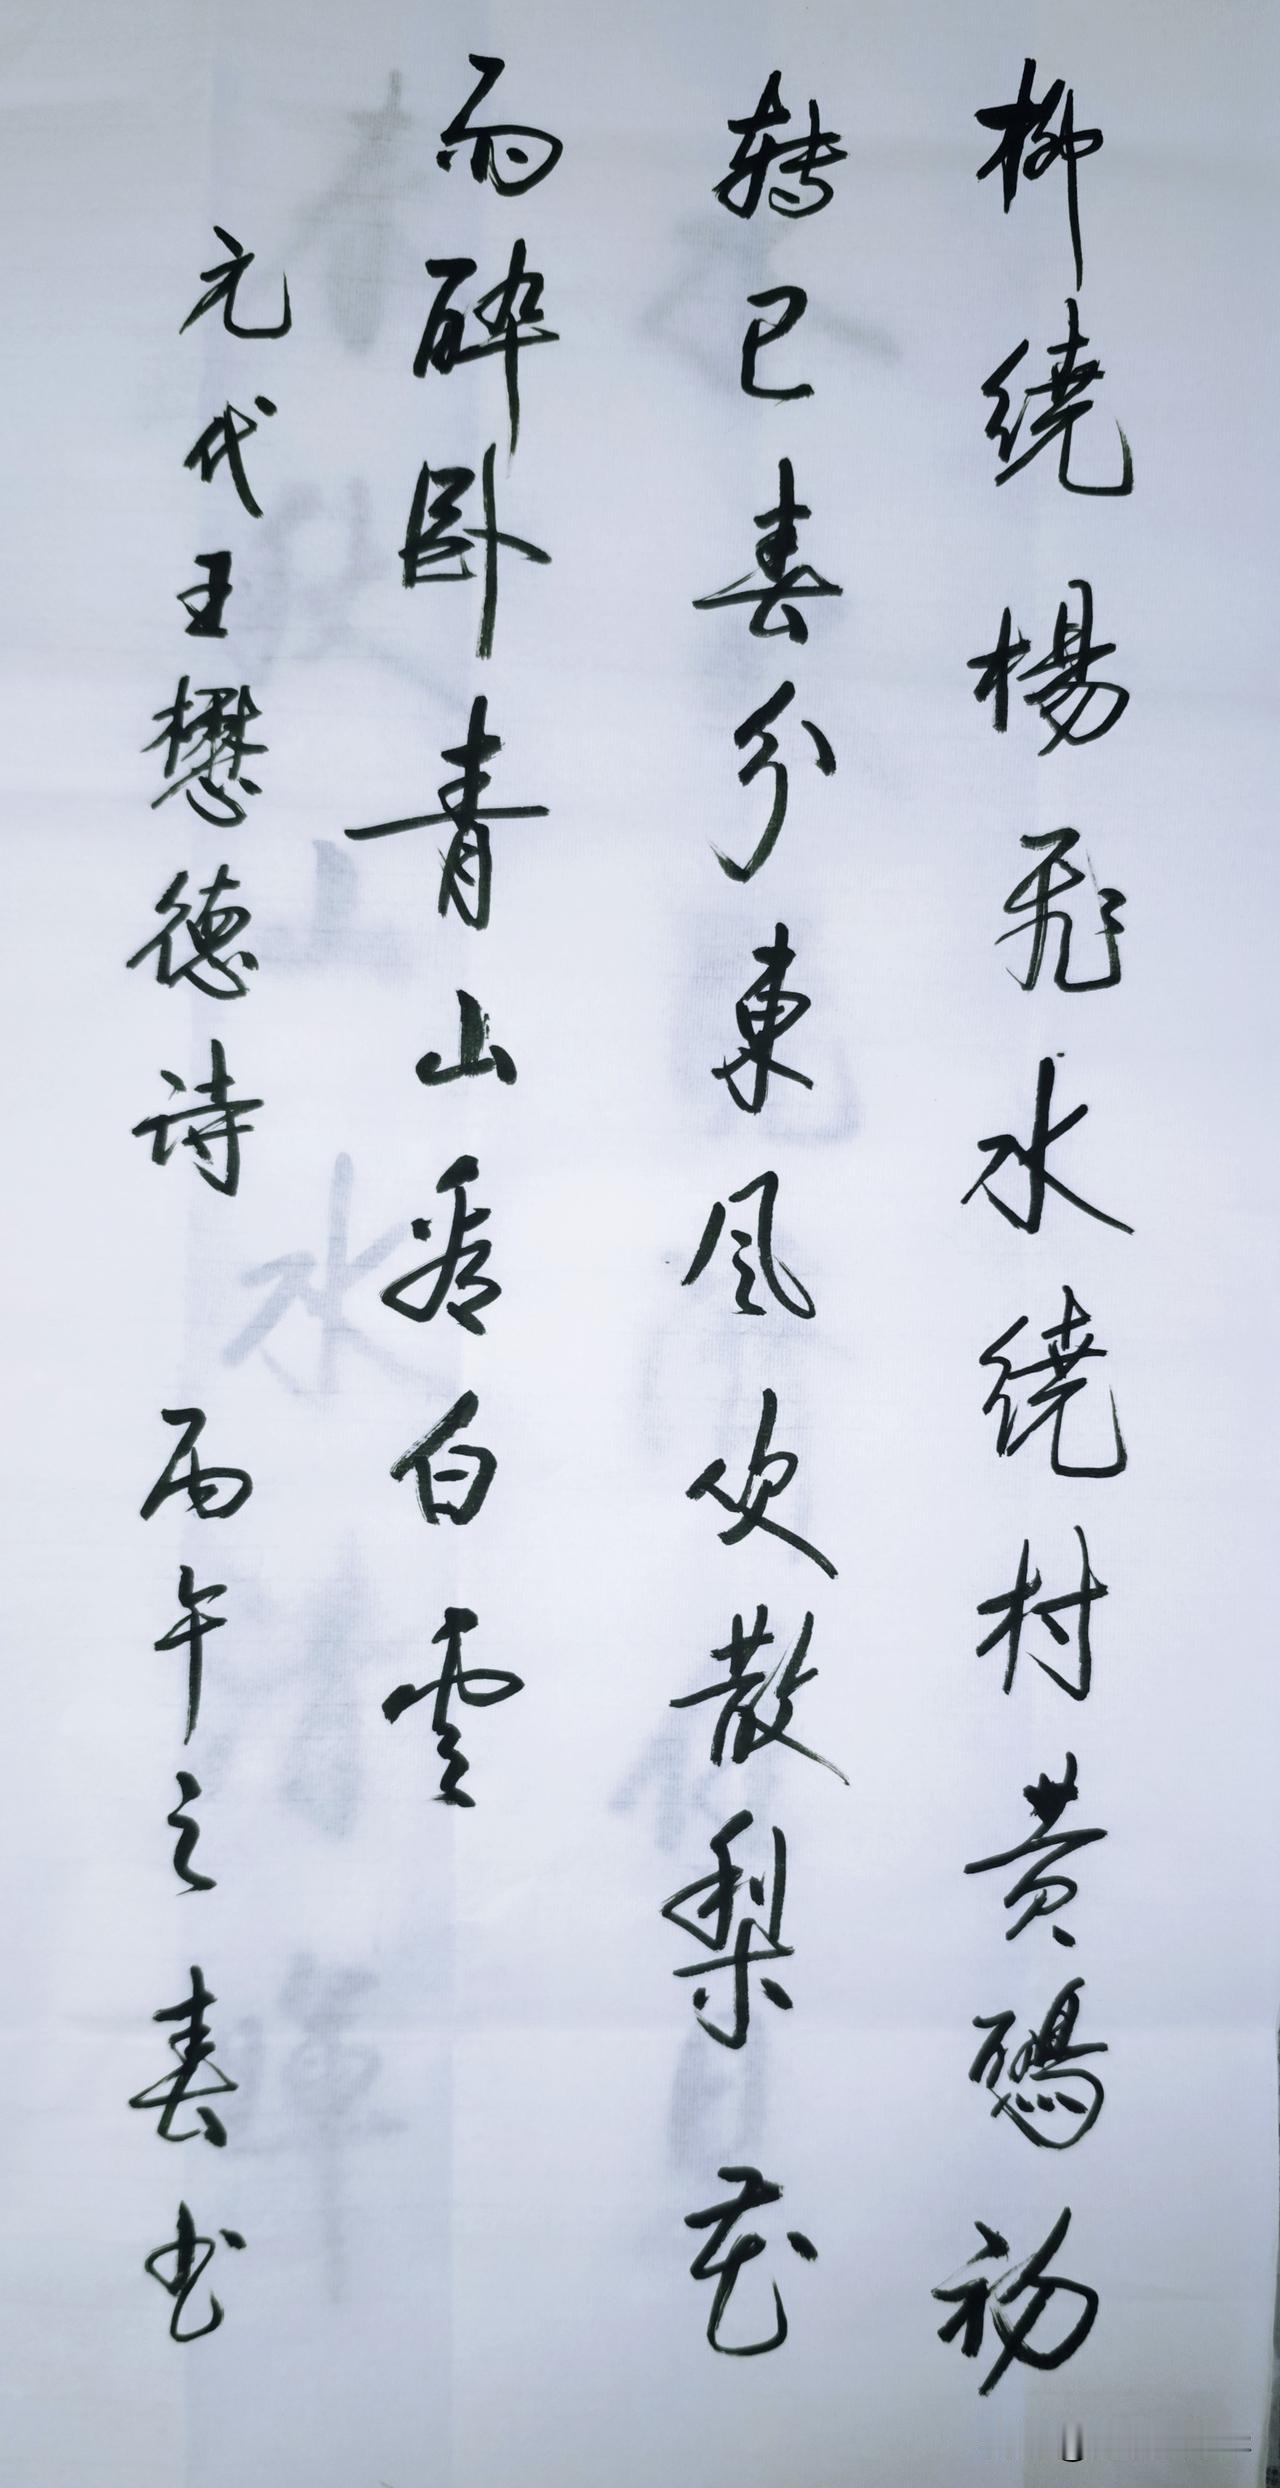 柳绕楊飛水绕村黄鸝初
转已春分東風吹散梨花
雨醉卧青山看白雲
元代王懋德诗 丙午之春书